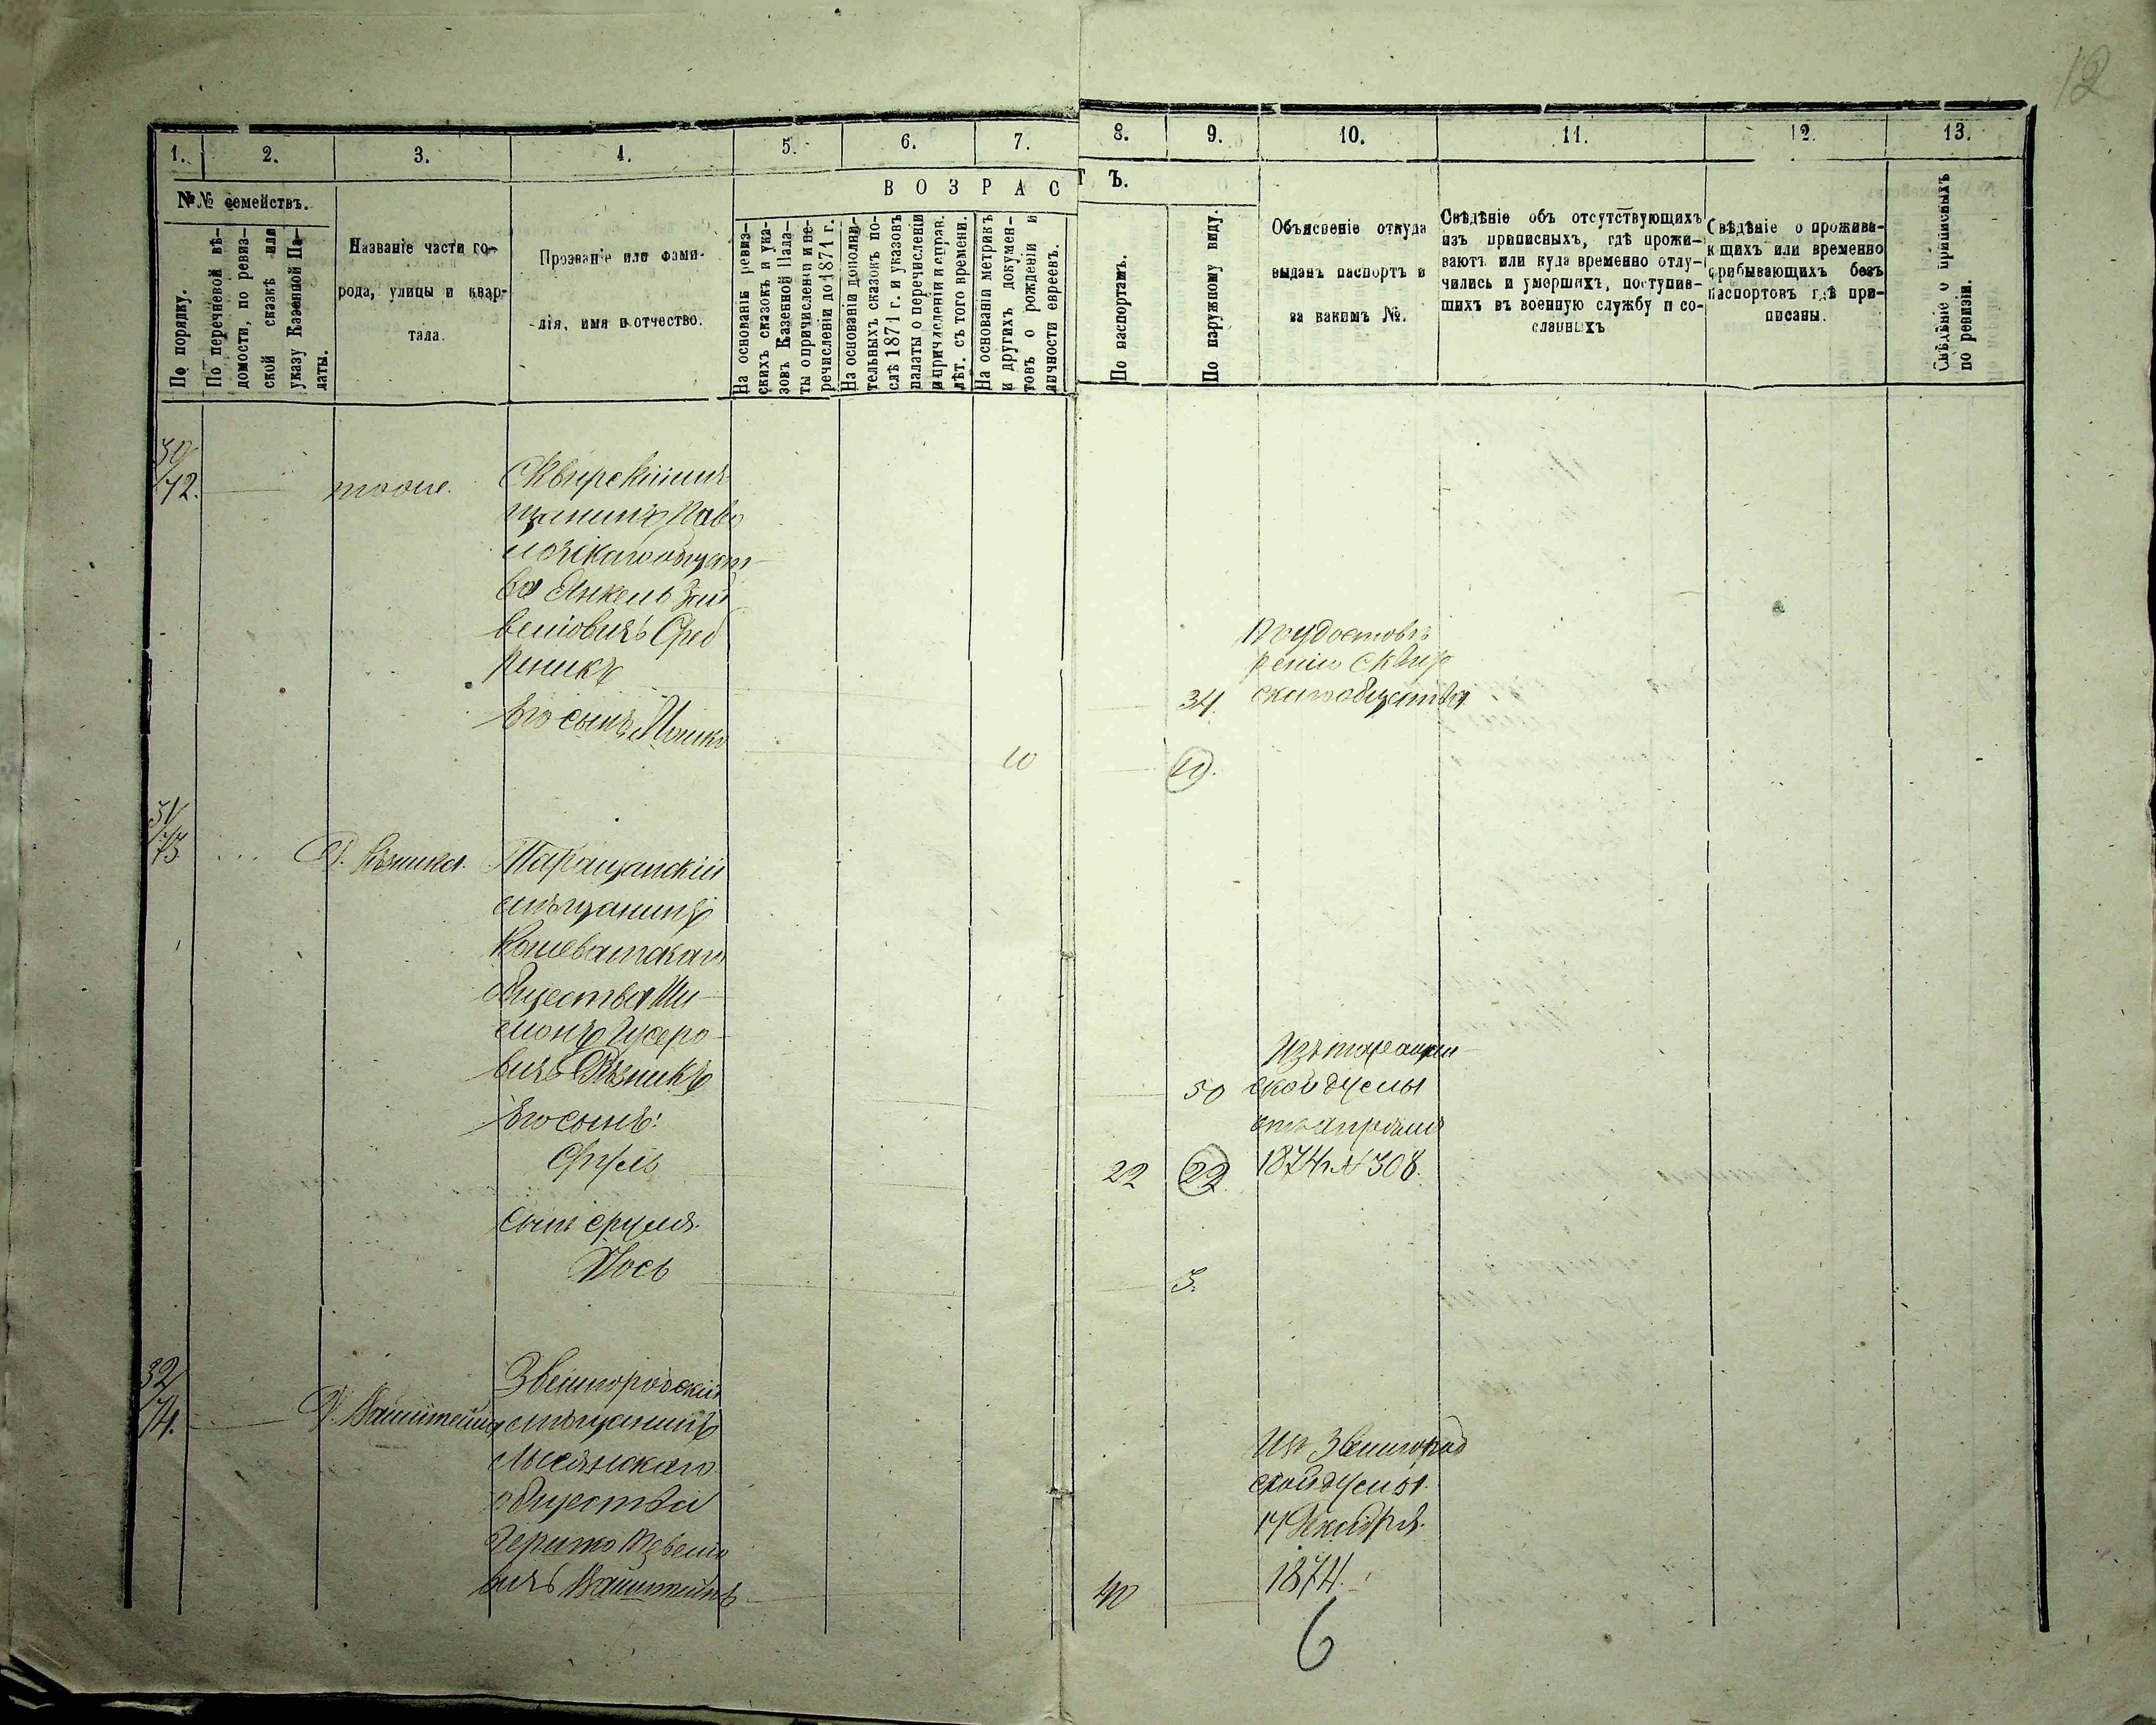 12
1. 2. 3. 4. 5. 6. 7. 8. 9. 10. 11. 12. 13.
№№ семействъ.
По порядку.
По перечневой вѣ-
домости, по ревиз-
ской сказкѣ или
указу Казенной Па-
латы.
Названіе части го-
рода, улицы и квар-
тала.
Прозваніе или фами-
лія, имя и отчество.
ВОЗРАСТЪ.
На основаніи ревиз-
скихъ сказокъ и ука-
зовъ Казенной Пала-
ты о причисленіи и пе-
речисленіи до 1871 г.
На основаніи дополни-
тельныхъ сказокъ по-
слѣ 1871 г. и указовъ
палаты о перечисленіи
и причисленіи и справ.
лѣт. съ того времени.
На основаніи метрикъ
и другихъ докумен-
товъ о рожденіи и
личности евреевъ.
По паспортамъ.
По наружному виду.
Объясненіе откуда
выданъ паспортъ и
за какимъ №.
Свѣдѣніе объ отсутствующихъ
изъ приписныхъ, гдѣ прожи-
ваютъ или куда временно отлу-
чились и умершихъ, поступив-
шихъ въ военную службу и со-
сланныхъ
Свѣдѣніе о прожива-
ющихъ или временно
прибывающихъ безъ
паспортовъ гдѣ при-
писаны.
Свѣдѣніе о приписныхъ
по ревизіи.
30/72.
тоже.
Сквирскій мѣ
щанинъ Паво
лочскаго общест
ва Янкель Зай
веліовичъ Сред
никъ
34.
По удостовѣ
ренію Сквир
скаго общества
Его сынъ Мошко
10
19.
31/73
Д. Рѣзника.
Таращанскій
мѣщанинъ
Кошеватскаго
общества Ши
монъ Гусеро
вичъ Рѣзникъ
50
Изъ таращан
ской думы
отъ Апрѣля
1874 г. № 308.
Его сынъ:
Сруль
22 22
Сынъ Сруля
Іось
3.
32/74.
Д. Вайнштейна
Звенигородскій
мѣщанинъ
Лысянскаго
общества
Гершко
вичъ Вайнштейнъ
40
Изъ Звенигород
ской думы
17 Декабря
1874.
6